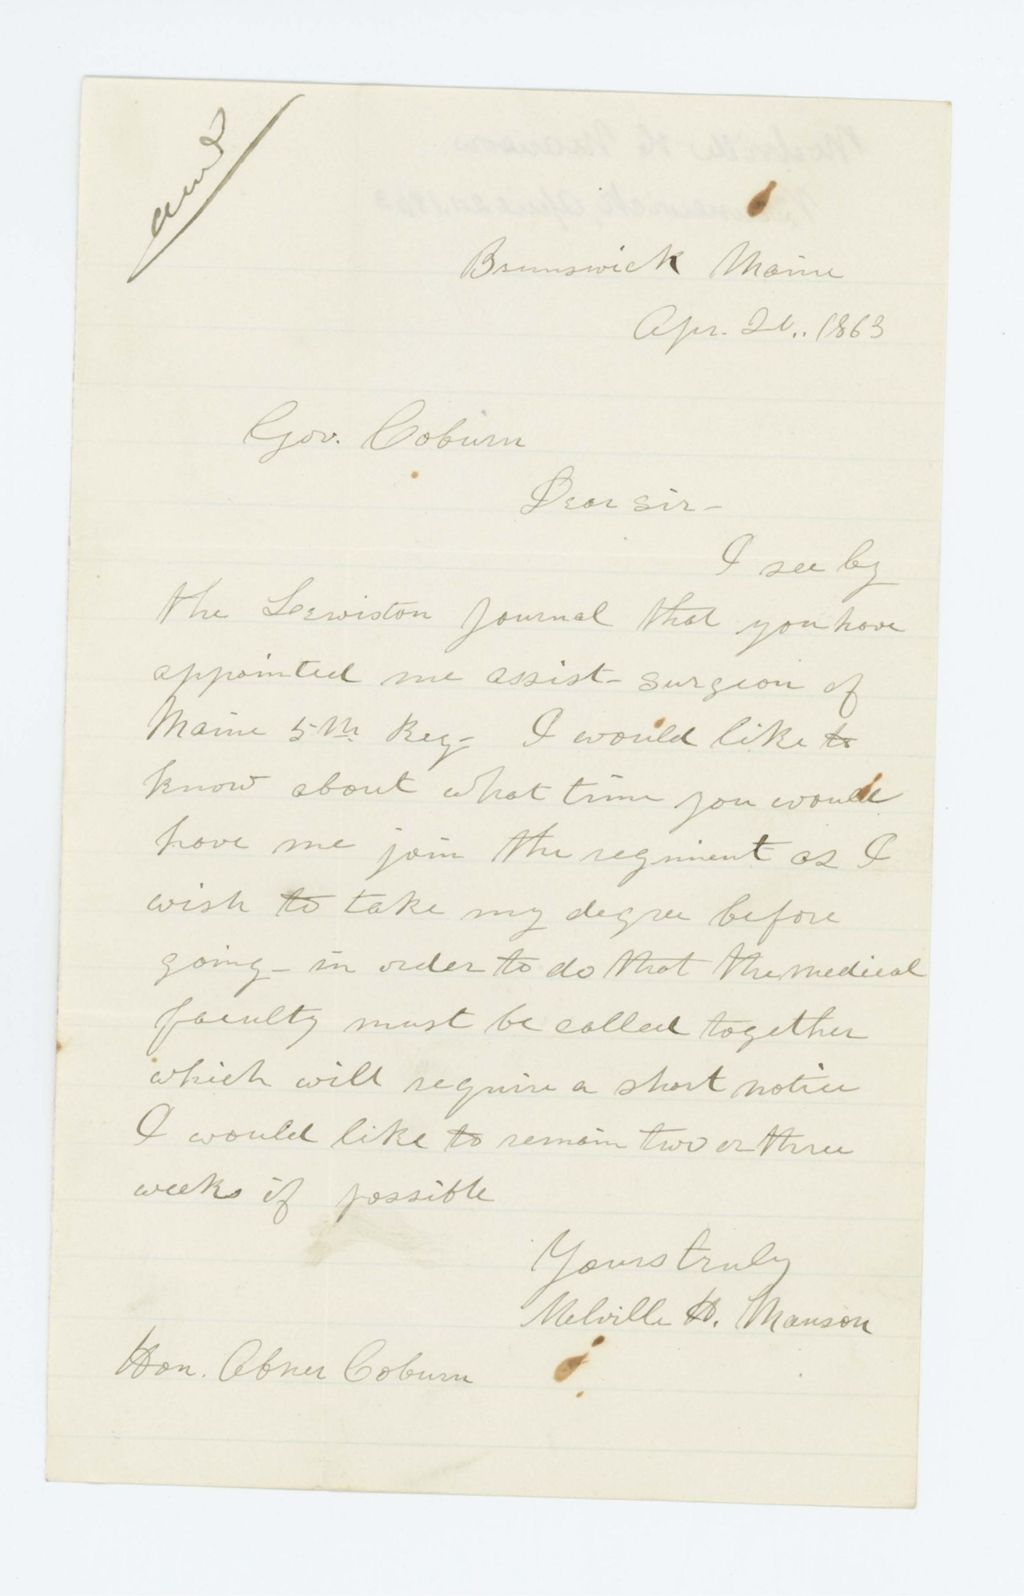 ansd
Brunswick Maine
Apr. 20., 1863
Gov. Coburn
Dear Sir-
I see by
the Lewiston Journal that you have
appointed me assist- surgeon of
Maine 5th Reg- I would like to
know about what time you would
have me join the regiment as I
wish to take my degree before
going - in order to do that the medical
faculty must be called together
which will require a short notice
I would like to remain two or three
weeks if possible
Yours truly
Melville H. Manson
Hon. Abner Coburn